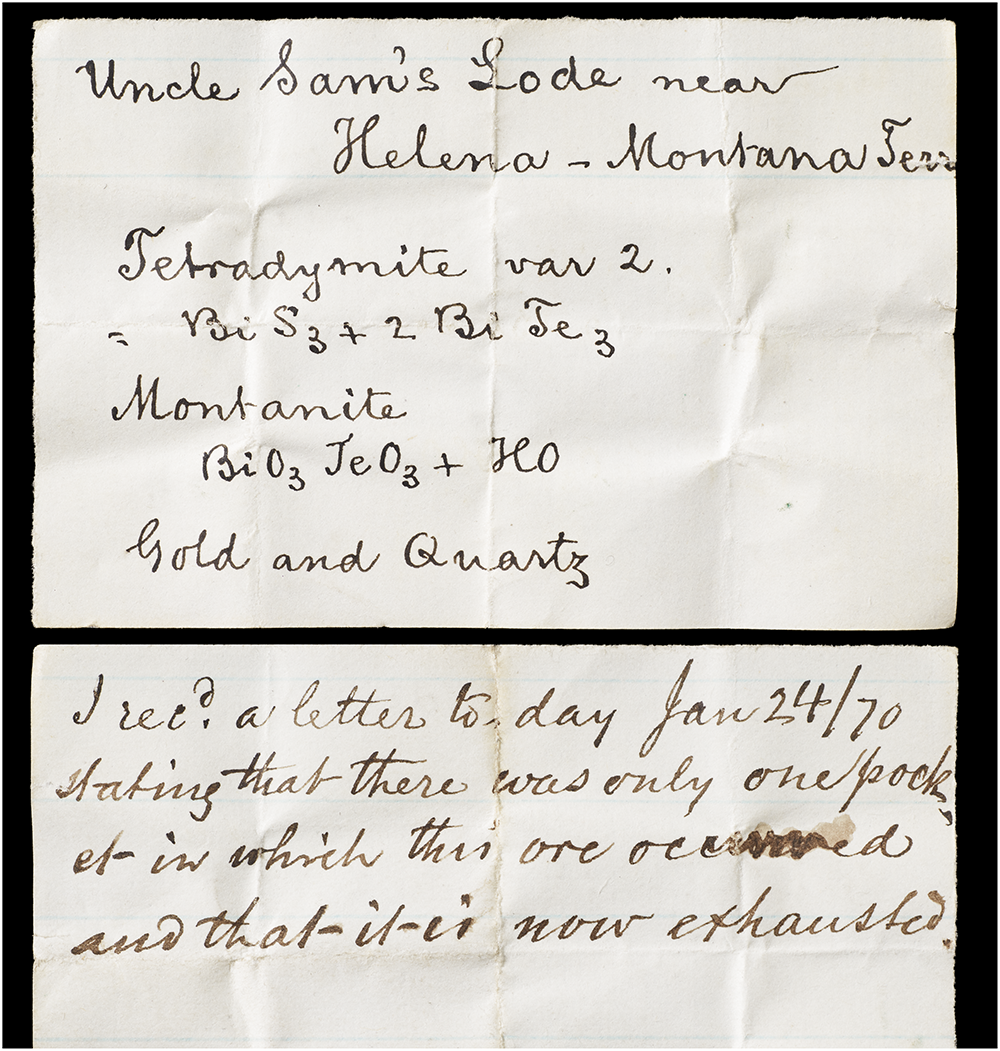 Uncle Sam's Lode near
Helena - Montana Terr
Tetradymite var 2.
= BiS₃ + 2 BiTe₃
Montanite
BiO₃ TeO₃ + HO
Gold and Quartz
I rec^d. a letter to day Jan 24/70
stating that there was only one pock-
et in which this ore occurred
and that it is now exhausted.